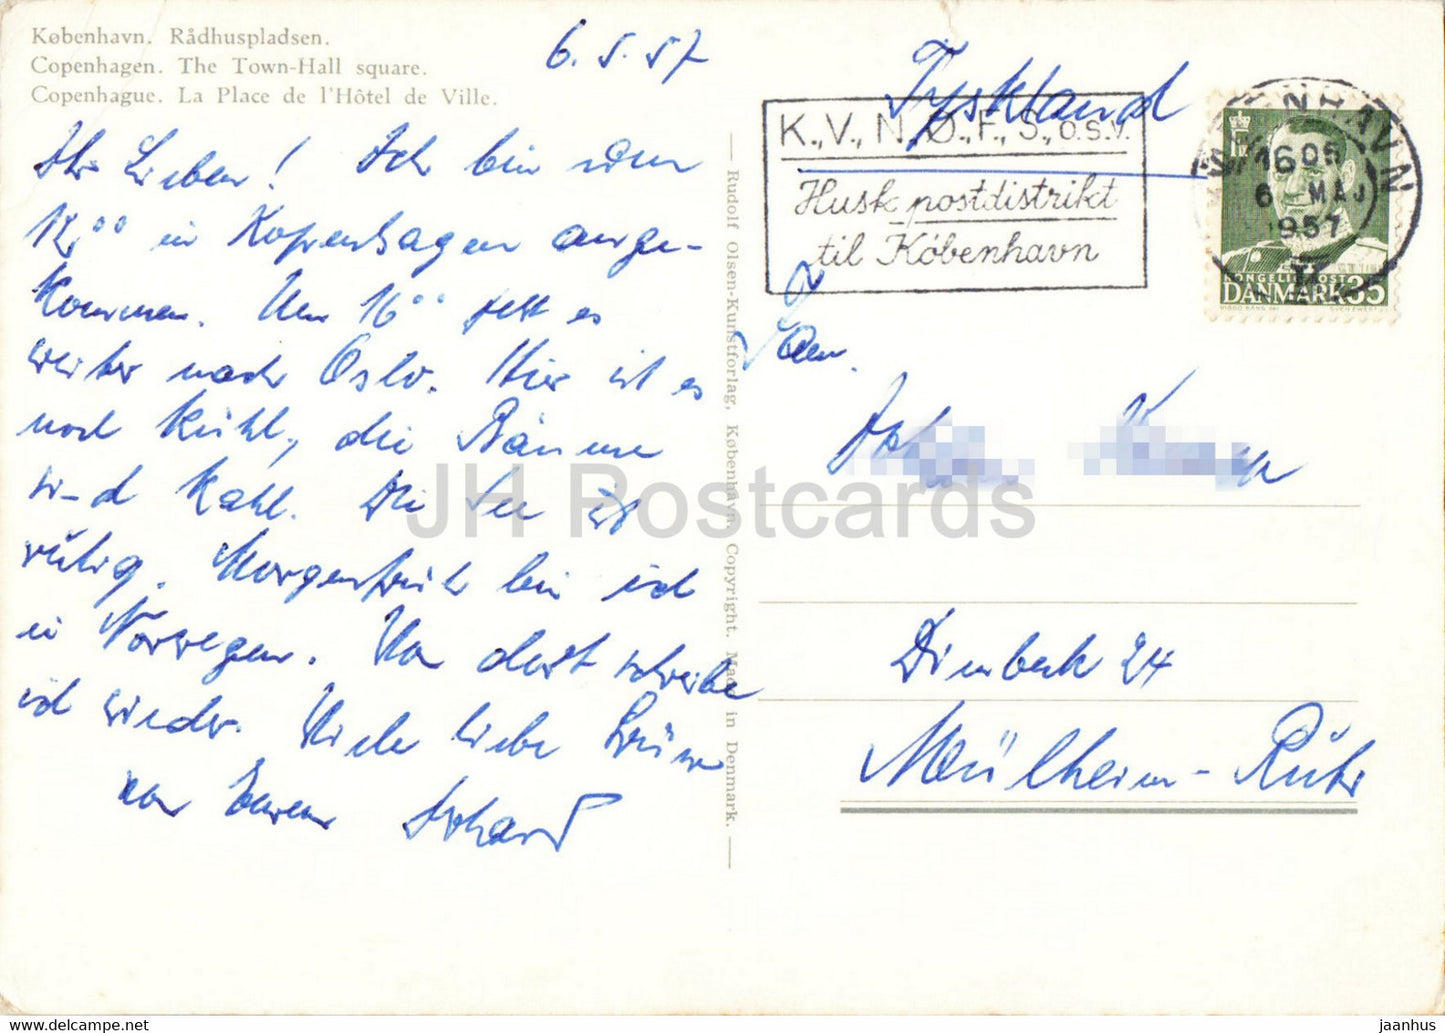 København. Rådhuspladsen.
Copenhagen. The Town-Hall square.
Copenhague. La Place de l'Hôtel de Ville.
6.5.57
Ihr Lieben! Ich bin um
12,00 in Kopenhagen ange-
kommen. Um 16 00 geht es
weiter nach Oslo. Hier ist es
noch kühl, die Bäume
sind kahl. Die See ist
ruhig. Morgenfrüh bin ich
in Norwegen. Von dort schreibe
ich wieder. Viele liebe Grüsse
von Eurem Erhard
Rudolf Olsen-Kunstforlag, København. Copyright. Made in Denmark.
Tyskland
K., V., N., Ø., F., S., o.s.v.
Husk postdistrikt
til København
KØBENHAVN
16 05
6 MAJ
1957
KONGELIG POST
DANMARK 35
VIGGO BANG
SVEN EWERT
Fam.
Dimbeck 24
Mülheim-Ruhr
JH Postcards
jaanhus
www.delcampe.net